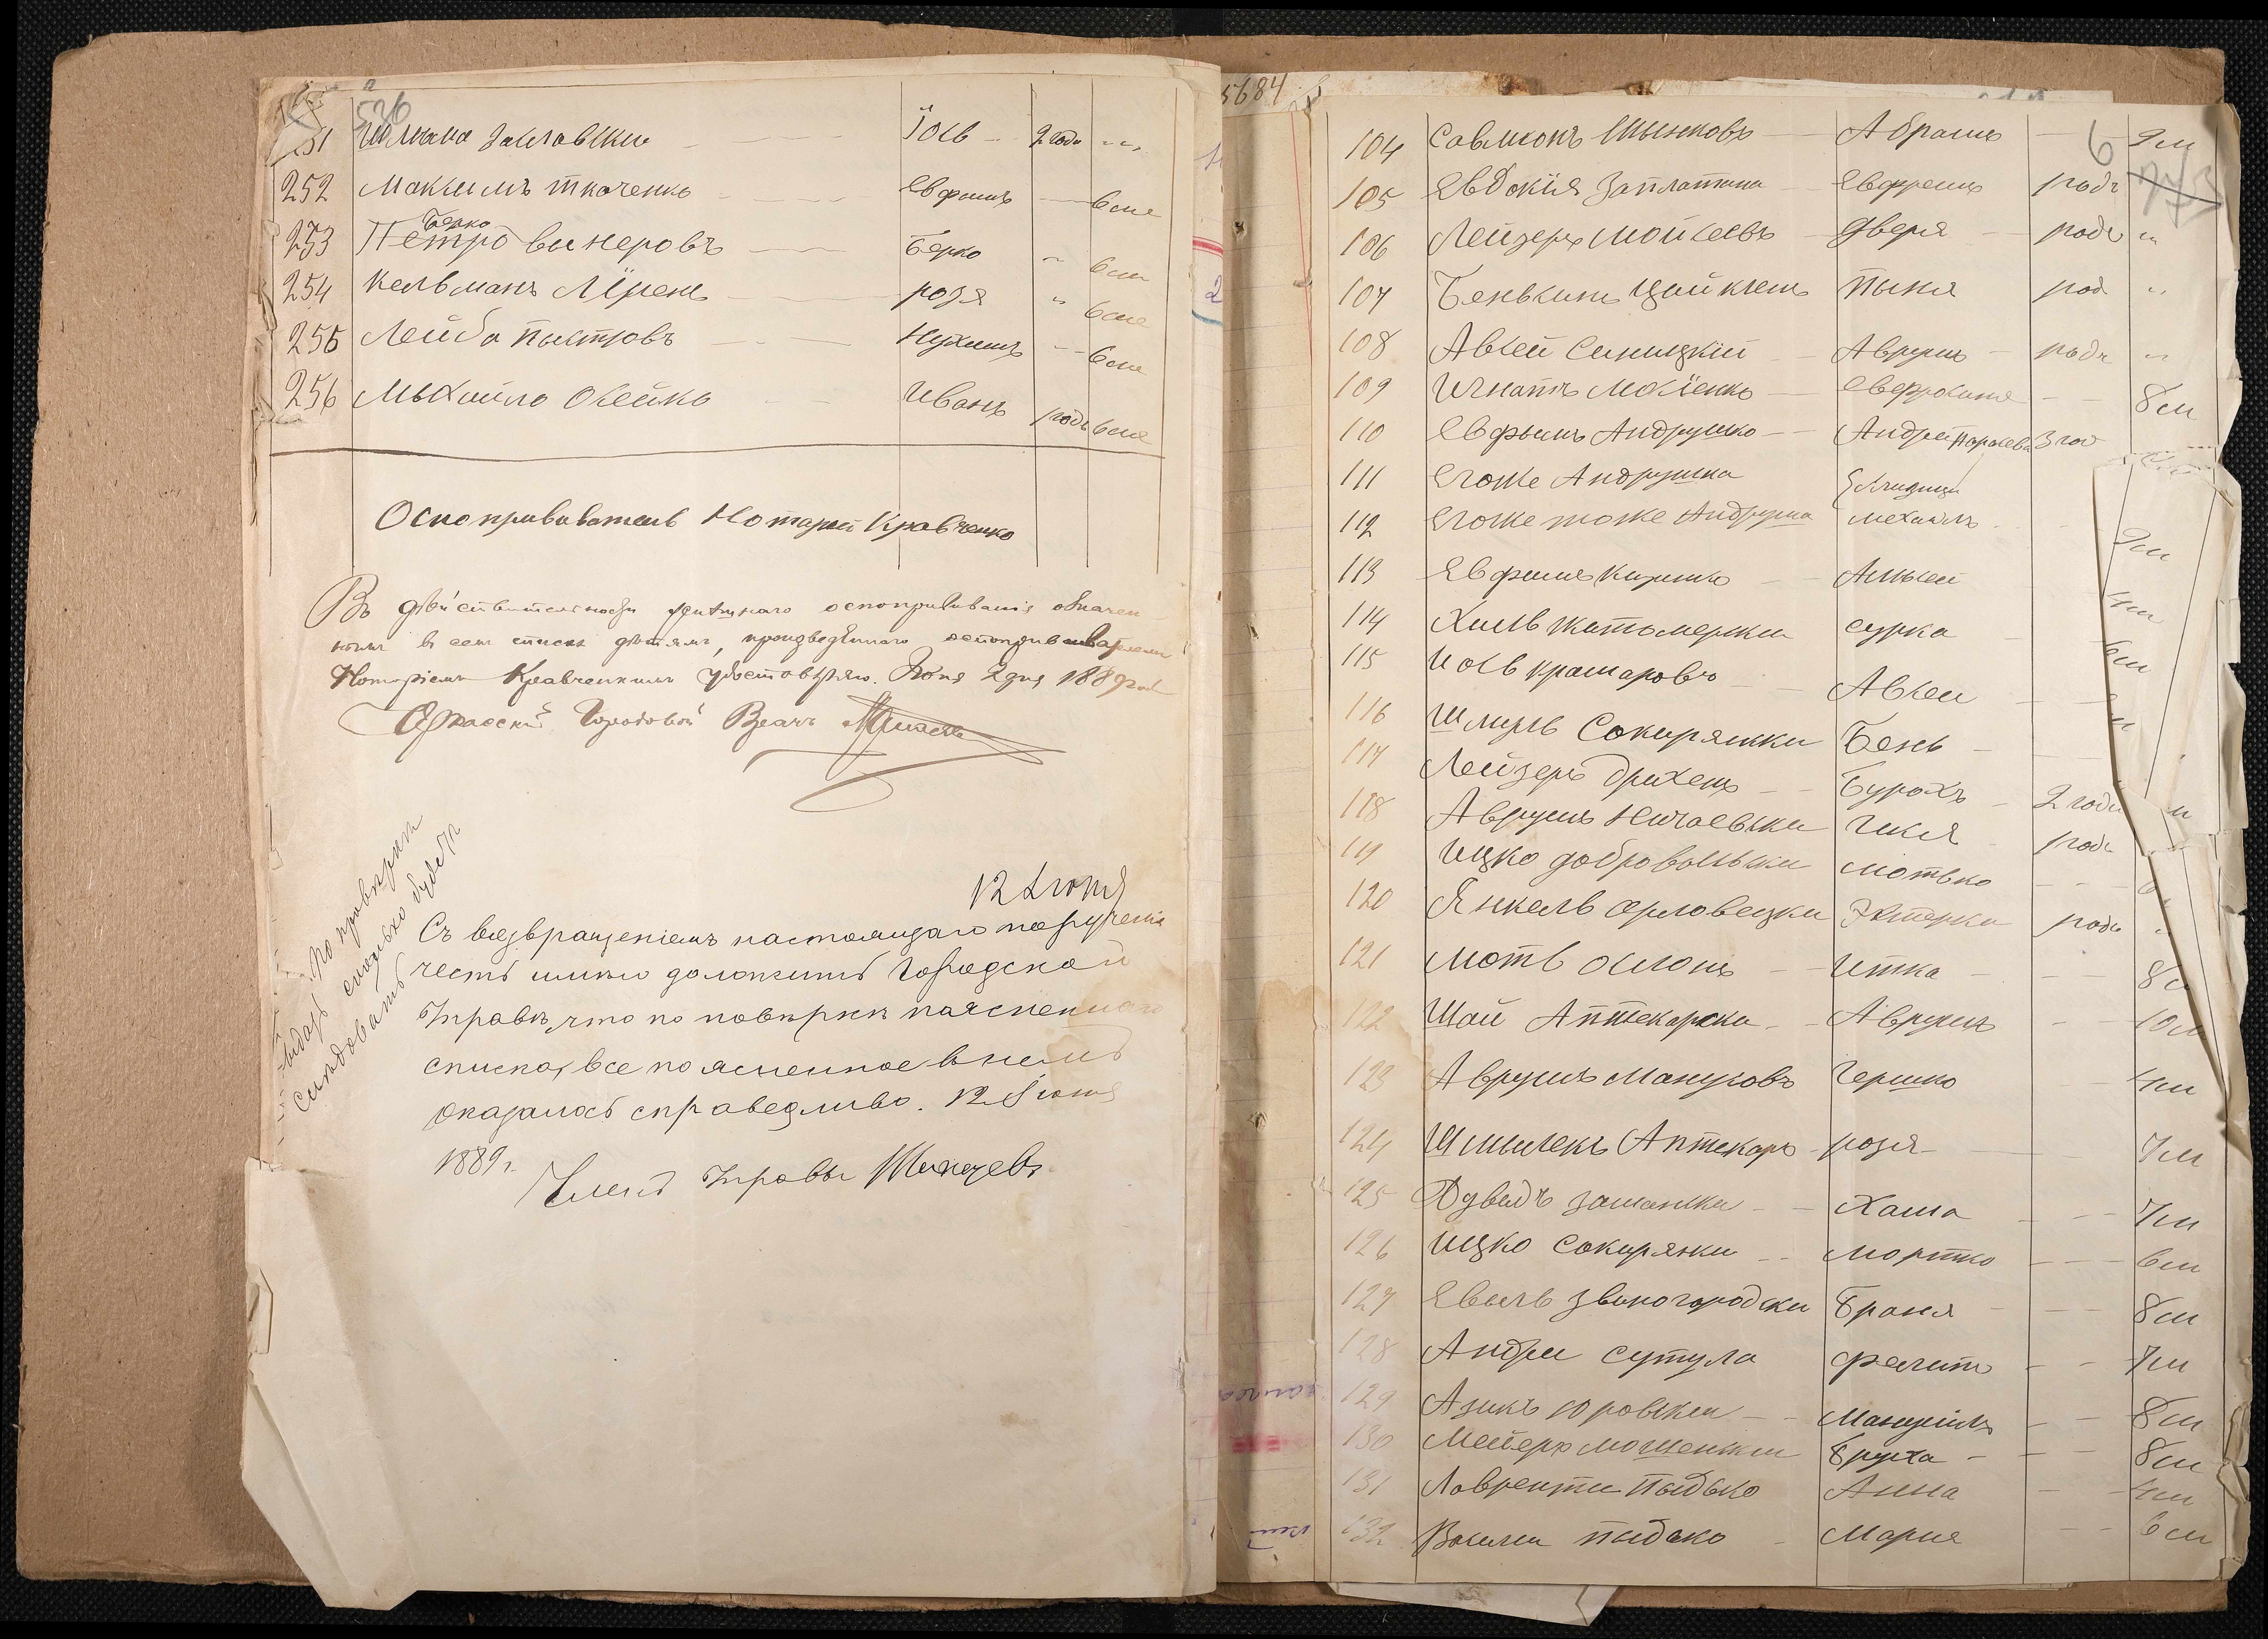 526
251 Шлема Заславски Іось 2 года
252 Максимъ ткаченко Евфимъ 6 ме
Берко
253 Петро винеровъ Берко " 6 ме
254 Кельманъ Лїренъ розя " 6 ме
255 Лейба Пыстровъ Нухимъ 6 ме
256 Мыхайло Овсейко Иванъ годъ 6 ме
Оспопрививатель Нотарий Кравченко
Въ действительности успешнаго оспопрививанія означен
нымъ в сем списке детямъ, произведеннаго оспопрививателем
Нотаріемъ Кравченкомъ удостоверяю. Июня 2 дня 1889 года
Городовой Врачъ
12 Июня
Съ возвращеніемъ настоящаго порученія
честь имею доложить Городской
Управе, что по поверке поясненнаго
списка, все поясненное в немъ
оказалось справедливо. 12 Июня
1889 г.
Членъ Управы
По проверки
выдать сколько будетъ
следовать
5684
6
104 Савмконъ Шынковъ Абрамъ 9 м
105 Евдокія Заплатина Евфремъ годъ
106 Лейзеръ Мойсеевъ Дверя годъ "
107 Бенькинъ Цайкинъ Пыня год "
108 Авсей Синицкій Аврумъ годъ "
109 Игнатъ Мокіенко Евфрокиния 8 м
110 Евфымъ Андрушко Андрей 3 го
111 Егоже Андрушка
112 Егоже тоже Андрушка Механлъ 9 м
113 Евфимъ Кириенко Алексей 4 м
114 Хиль Жатомерски сурка 6 м
115 Иось крамаровъ Авсеи
116 Шмуль Сокирянски Бень
117 Лейзеръ Брихенъ Бурохъ 2 годи
118 Аврумъ Ничаевски Гися годъ
119 Ицко добровольски Мотько
120 Янкель Орловецки Эстерка годъ
121 Моть Ослонъ Итка 8
122 Шай Аптекарски Аврумъ 10 м
123 Аврумъ Мануковъ Гершко 4 м
124 Шмилекъ Аптекаръ розя 7 м
125 Дувидъ Замански Хама 7 м
126 Ицко Сокирянки Мортко 6 м
127 Евель Звиногородски Браня 8 м
128 Андри сутула Фелить 7 м
129 Азикъ Юровски Мануилъ 8 м
130 Мейеръ Мошенски Бруха 8 м
131 Лаврентий Пыдько Анна 4 м
132 Василий пыдько Мария 6 м